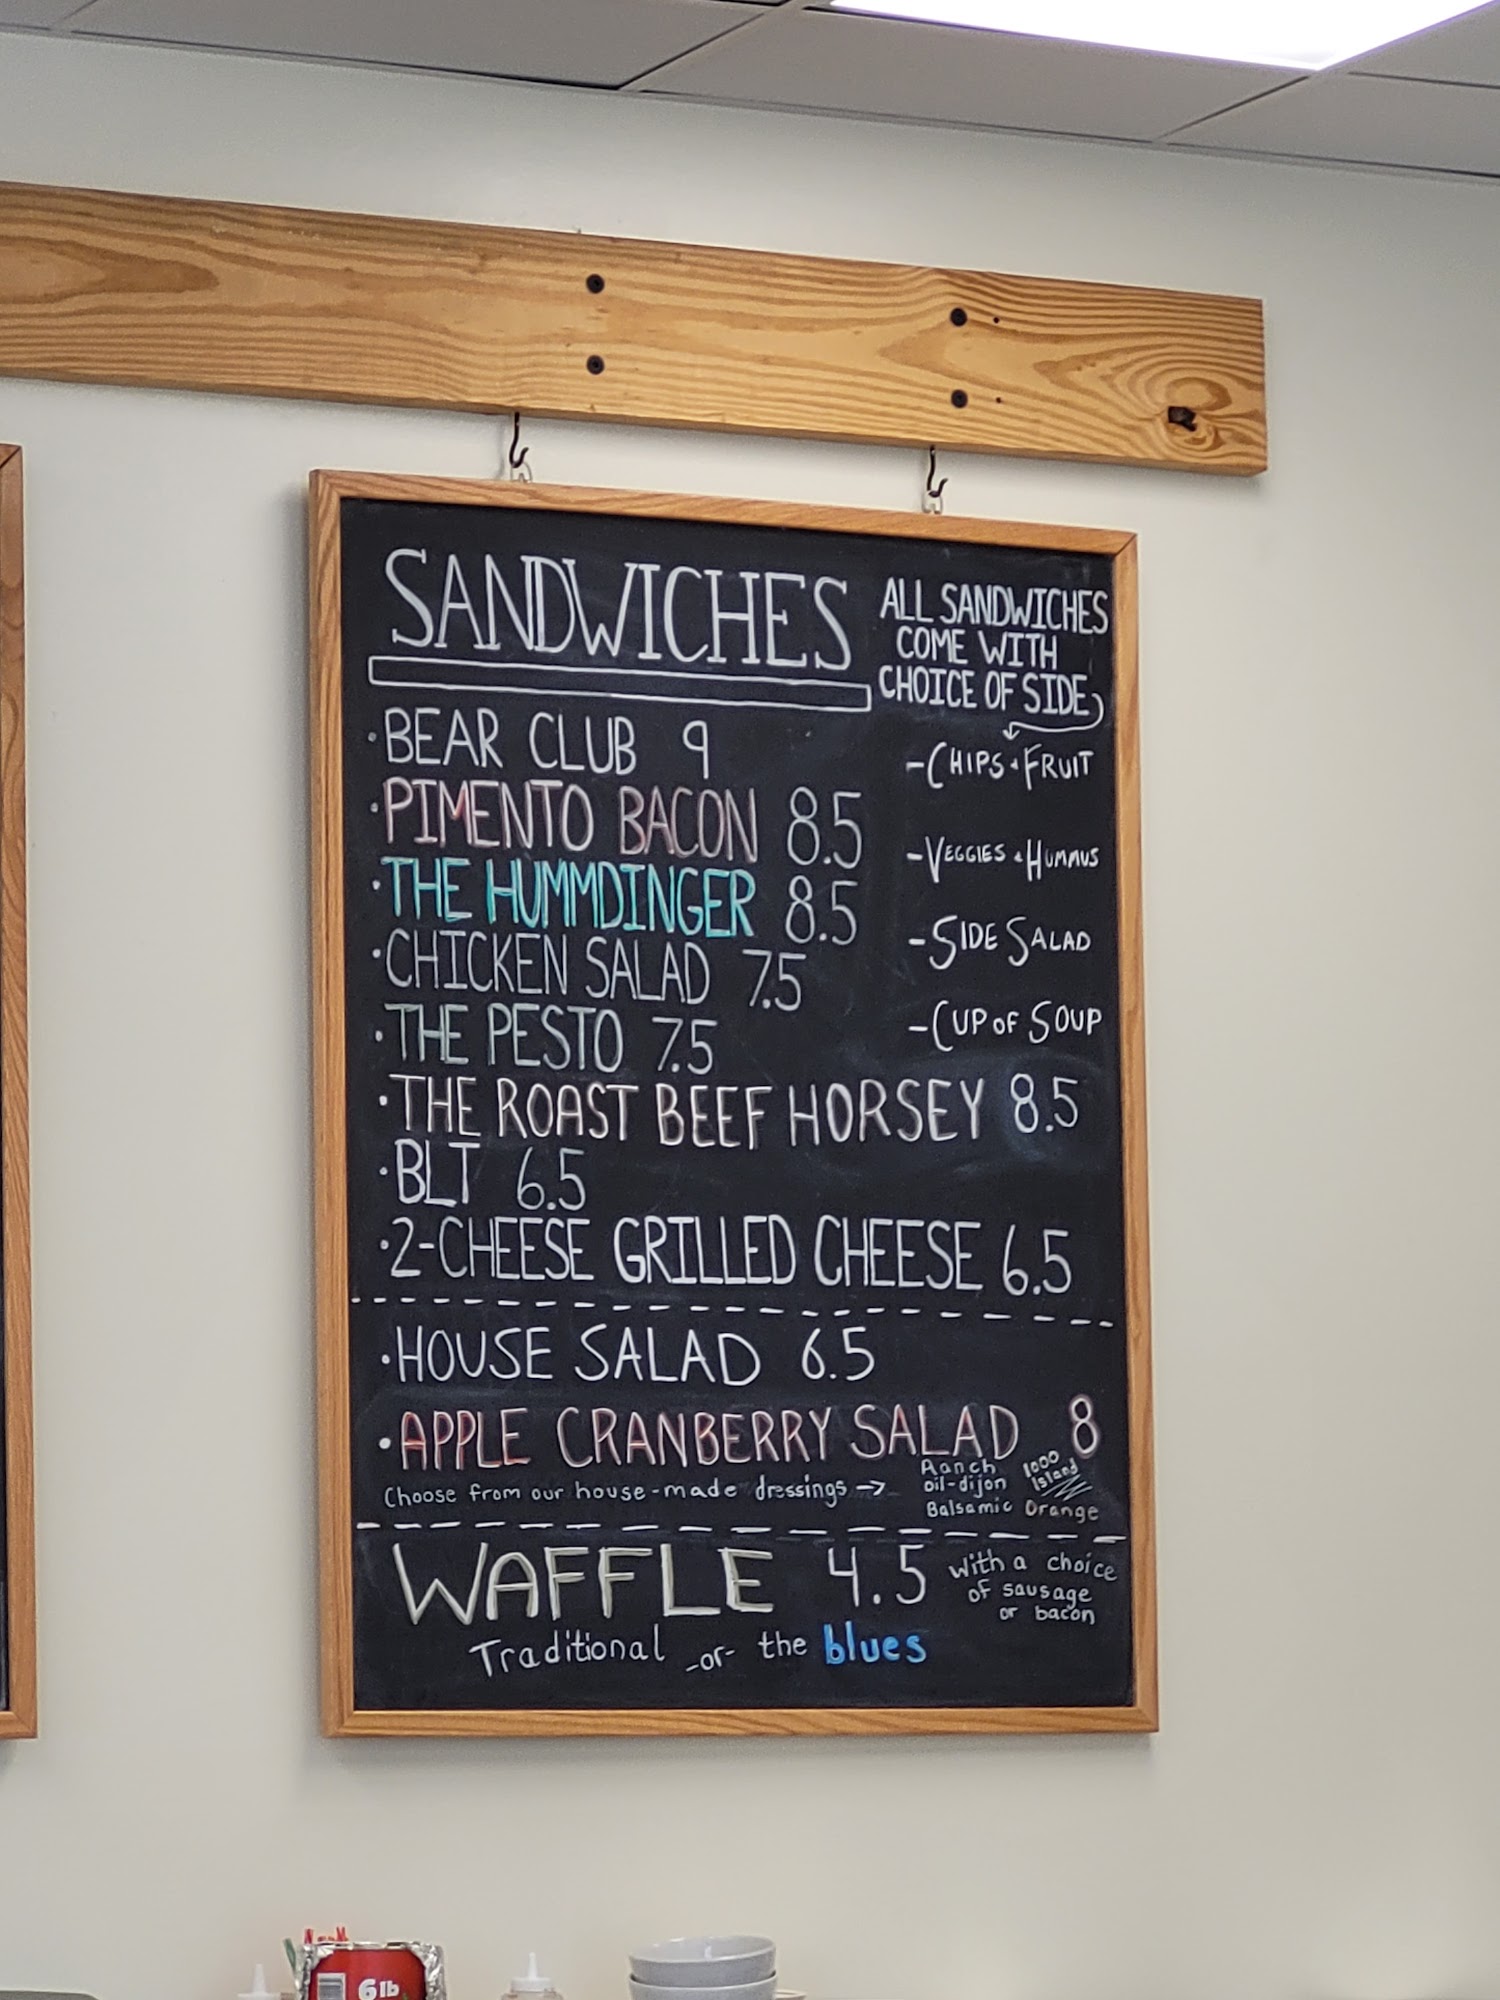 SANDWICHES
ALL SANDWICHES
COME WITH
CHOICE OF SIDE
- CHIPS & FRUIT
- VEGGIES & HUMMUS
- SIDE SALAD
- CUP OF SOUP
· BEAR CLUB 9
· PIMENTO BACON 8.5
· THE HUMMDINGER 8.5
· CHICKEN SALAD 7.5
· THE PESTO 7.5
· THE ROAST BEEF HORSEY 8.5
· BLT 6.5
· 2-CHEESE GRILLED CHEESE 6.5
· HOUSE SALAD 6.5
· APPLE CRANBERRY SALAD 8
Choose from our house-made dressings →
Ranch
oil-dijon
Balsamic
1000
Island
Orange
WAFFLE 4.5
with a choice
of sausage
or bacon
Traditional -or- the blues
6lb